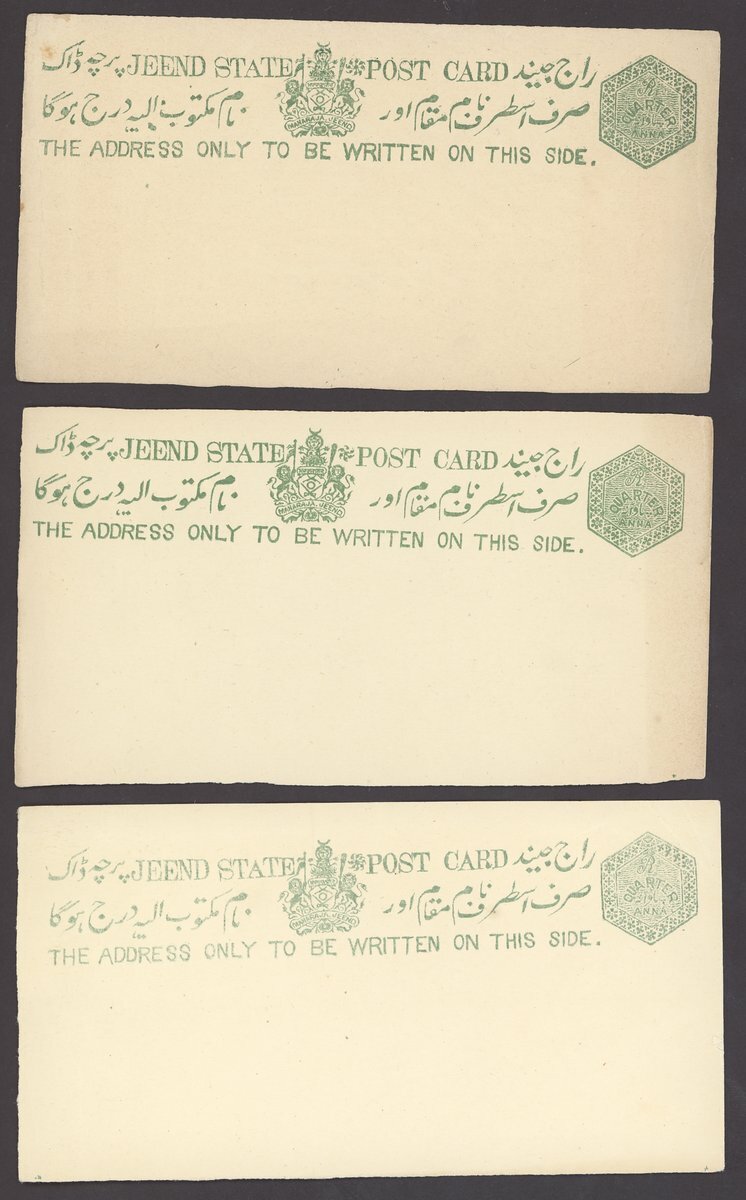 پرچہ ڈاک JEEND STATE POST CARD راج جیند
صرف اسطرف نام مقام اور نام مکتوب الیہ درج ہوگا
MAHARAJA JEEND
THE ADDRESS ONLY TO BE WRITTEN ON THIS SIDE.
R
QUARTER
ANNA
پرچہ ڈاک JEEND STATE POST CARD راج جیند
صرف اسطرف نام مقام اور نام مکتوب الیہ درج ہوگا
MAHARAJA JEEND
THE ADDRESS ONLY TO BE WRITTEN ON THIS SIDE.
R
QUARTER
ANNA
پرچہ ڈاک JEEND STATE POST CARD راج جیند
صرف اسطرف نام مقام اور نام مکتوب الیہ درج ہوگا
MAHARAJA JEEND
THE ADDRESS ONLY TO BE WRITTEN ON THIS SIDE.
R
QUARTER
ANNA